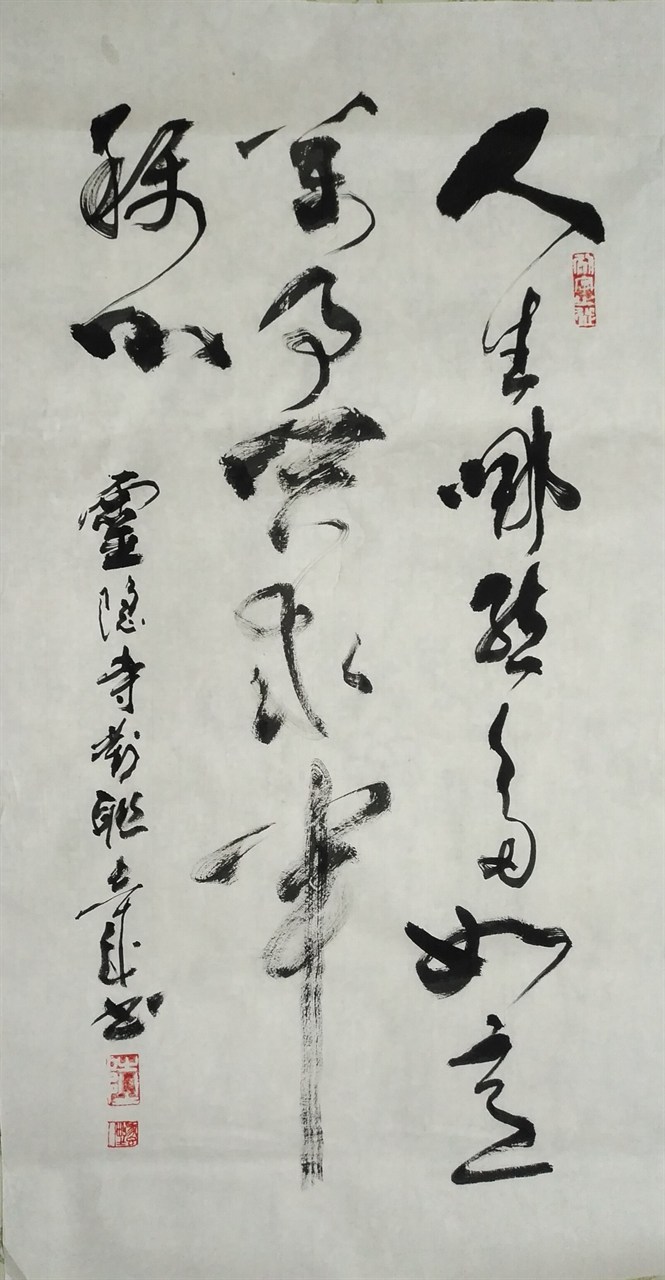 人生哪能多如意
萬事只求半
稱心
靈隱寺對聯 書